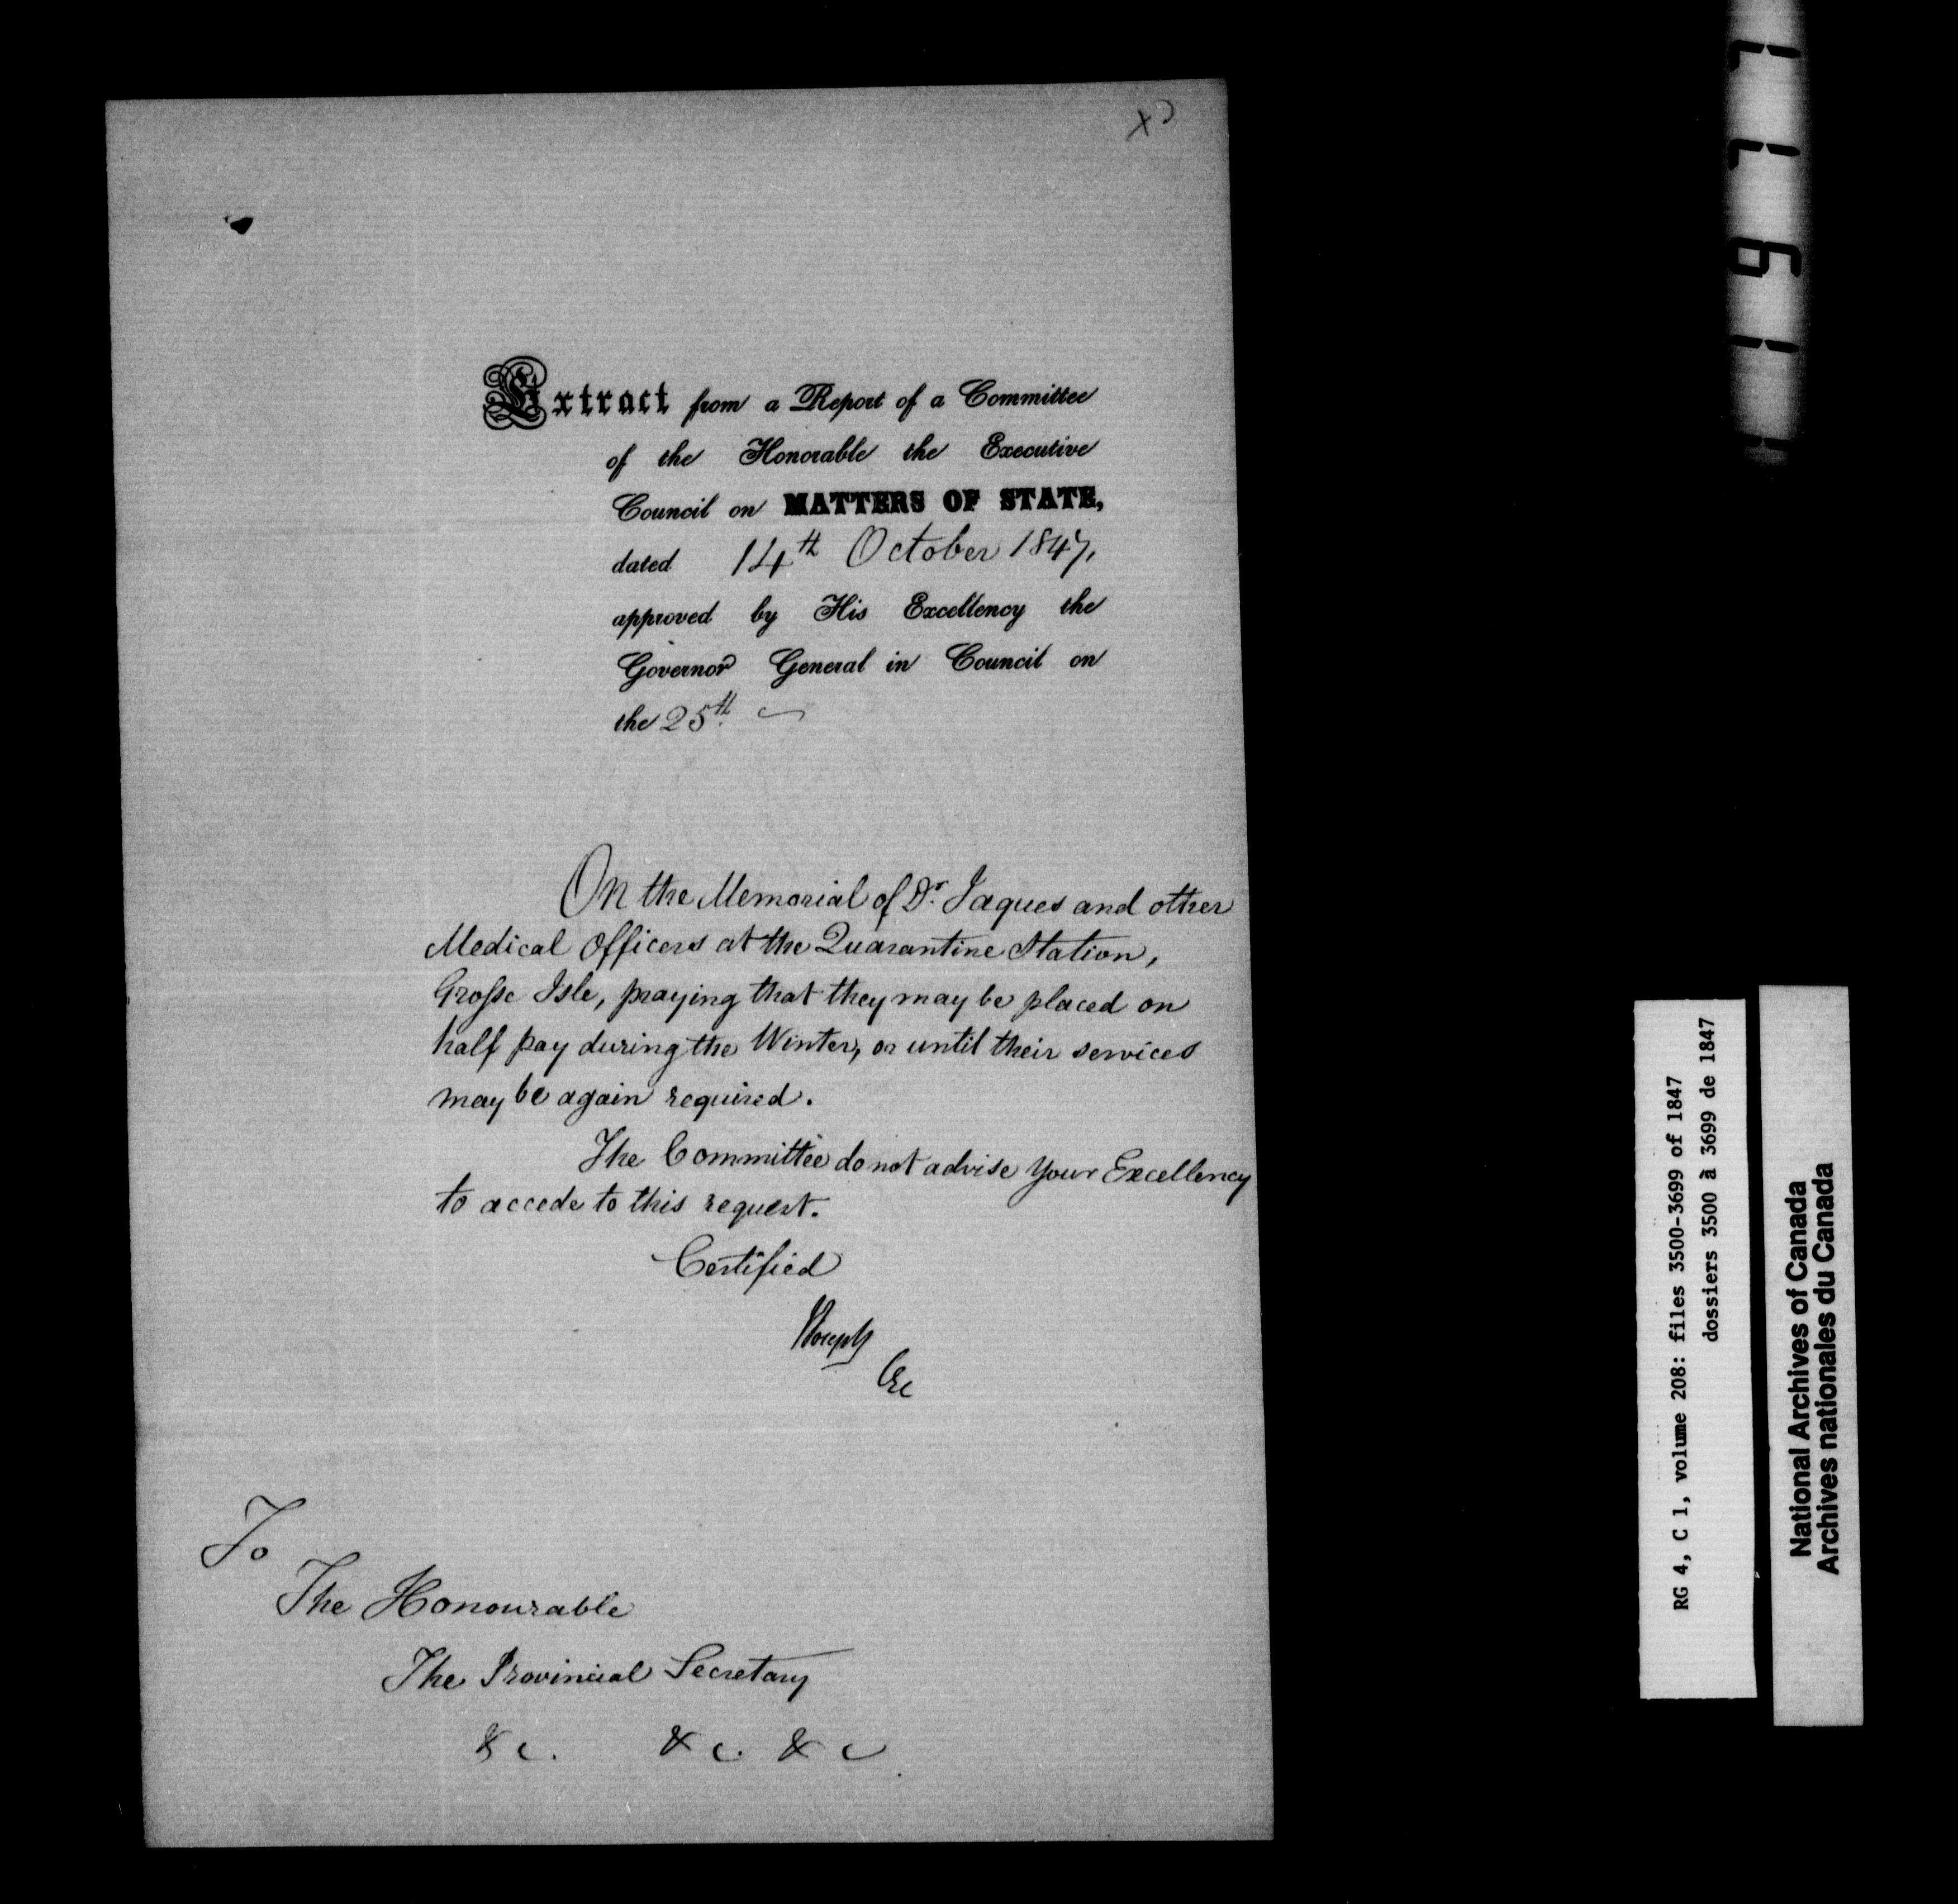 Extract from a Report of a Committee
of the Honorable the Executive
Council on MATTERS OF STATE,
dated 14th October 1847,
approved by His Excellency the
Governor General in Council on
the 25th.
On the Memorial of Dr. Jaques and other
Medical Officers at the Quarantine Station,
Grosse Isle, praying that they may be placed on
half pay during the Winter, or until their services
may be again required.
The Committee do not advise Your Excellency
to accede to this request.
Certified
To
The Honourable
The Provincial Secretary
&c. &c. &c
RG 4, C 1, volume 208: files 3500-3699 of 1847
dossiers 3500 à 3699 de 1847
National Archives of Canada
Archives nationales du Canada